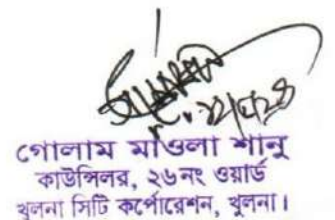 গোলাম মাওলা শানু
কাউন্সিলর, ২৬নং ওয়ার্ড
খুলনা সিটি কর্পোরেশন, খুলনা।